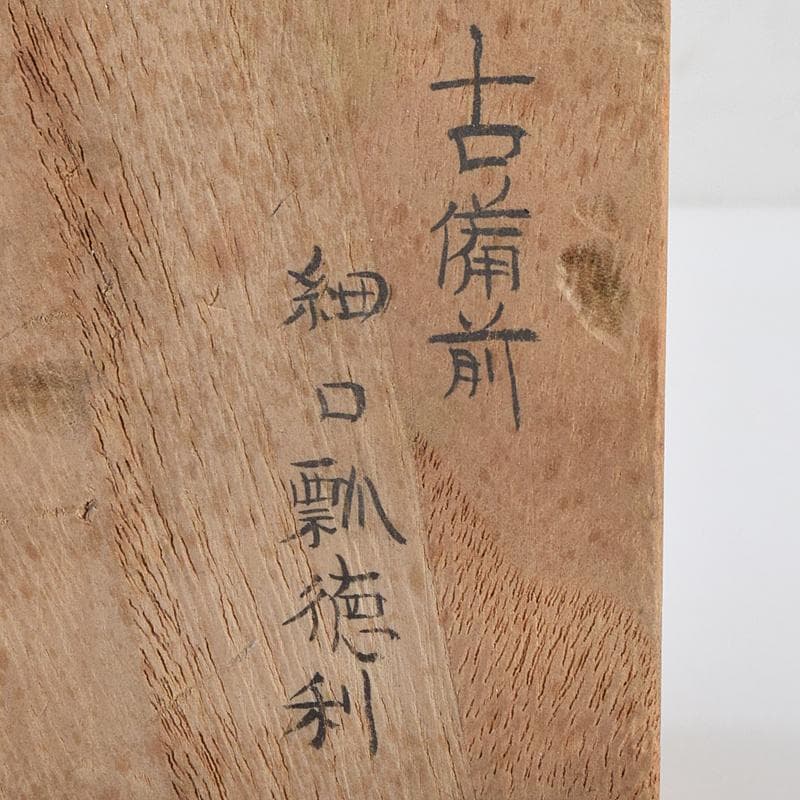 古備前
細口瓢徳利